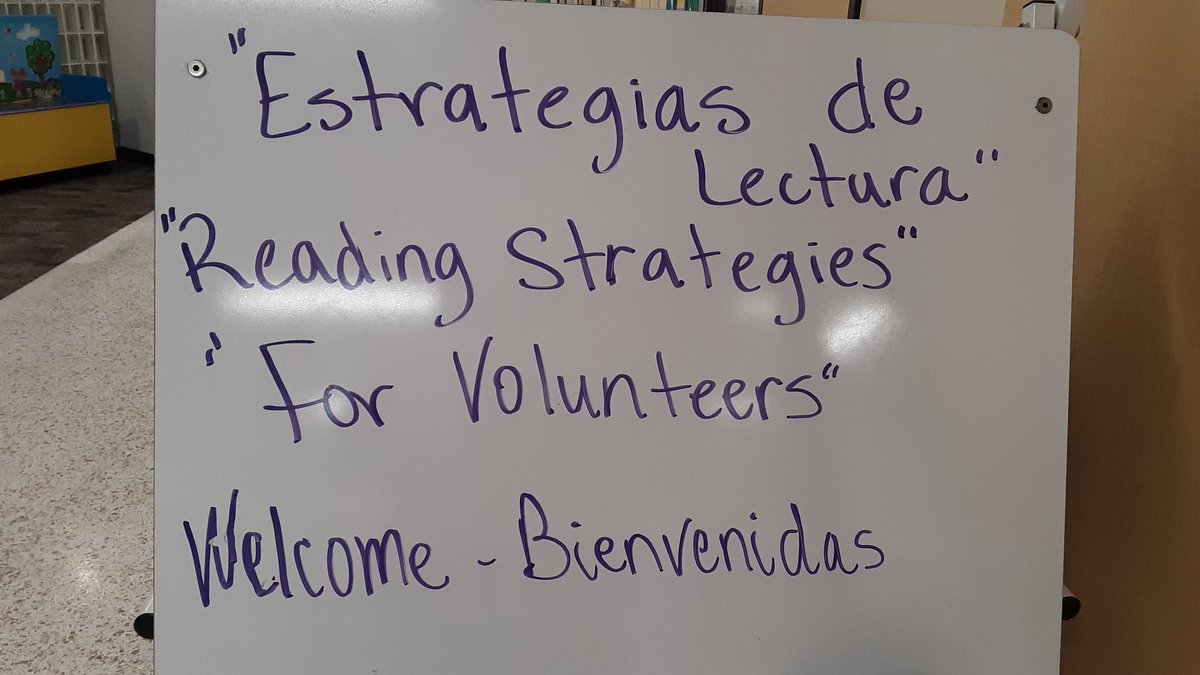 "Estrategias de
Lectura"
"Reading Strategies"
"For Volunteers"
Welcome - Bienvenidas